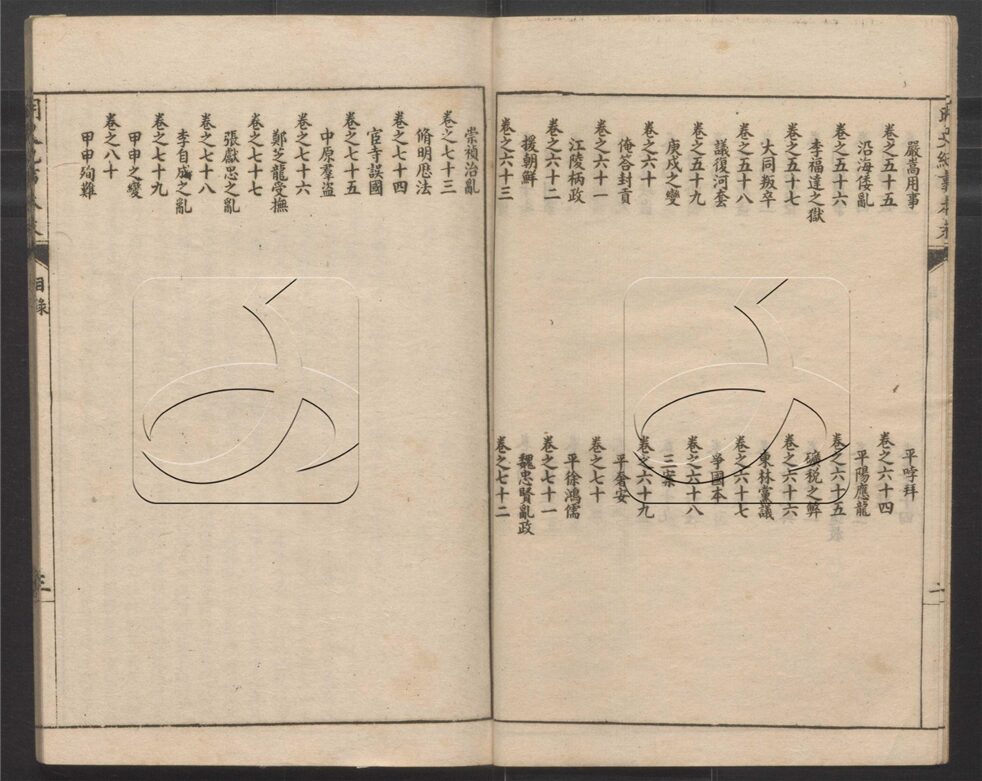 嚴嵩用事
卷之五十五
沿海倭亂
卷之五十六
李福達之獄
卷之五十七
大同叛卒
卷之五十八
議復河套
卷之五十九
庚戌之變
卷之六十
俺答封貢
卷之六十一
江陵柄政
卷之六十二
援朝鮮
卷之六十三
平哱拜
卷之六十四
平陽應龍
卷之六十五
礦稅之弊
卷之六十六
東林黨議
卷之六十七
爭國本
卷之六十八
三案
卷之六十九
平奢安
卷之七十
平徐鴻儒
卷之七十一
魏忠賢亂政
卷之七十二
崇禎治亂
卷之七十三
脩明厯法
卷之七十四
宦寺誤國
卷之七十五
中原羣盜
卷之七十六
鄭芝龍受撫
卷之七十七
張獻忠之亂
卷之七十八
李自成之亂
卷之七十九
甲申之變
卷之八十
甲申殉難
目錄
三